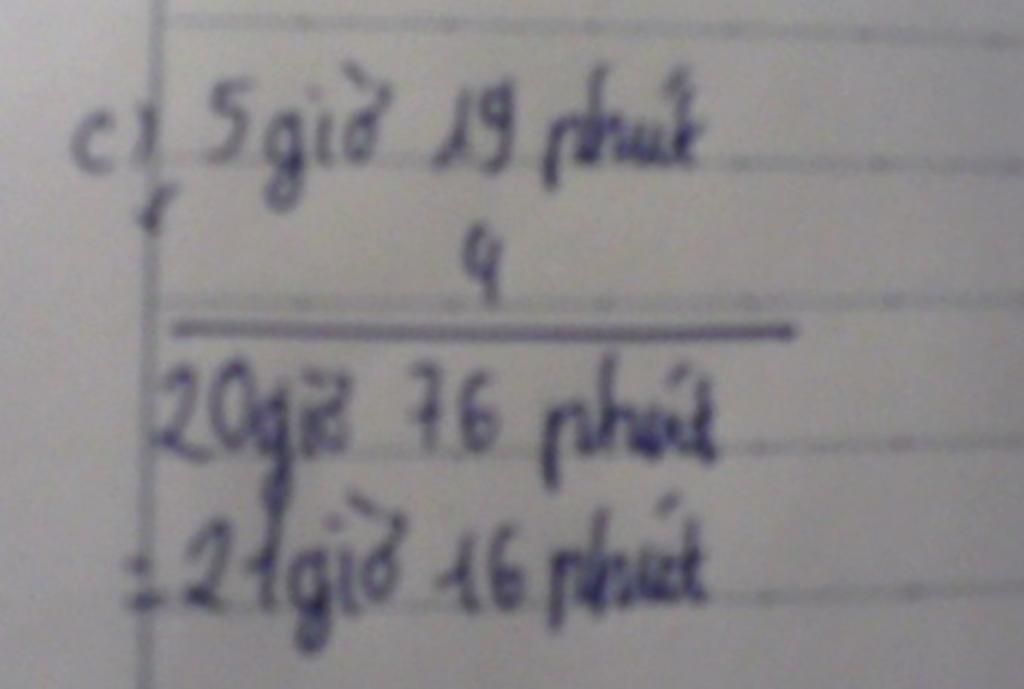 c) 5 giờ 19 phút
x
4
20 giờ 76 phút
= 21 giờ 16 phút